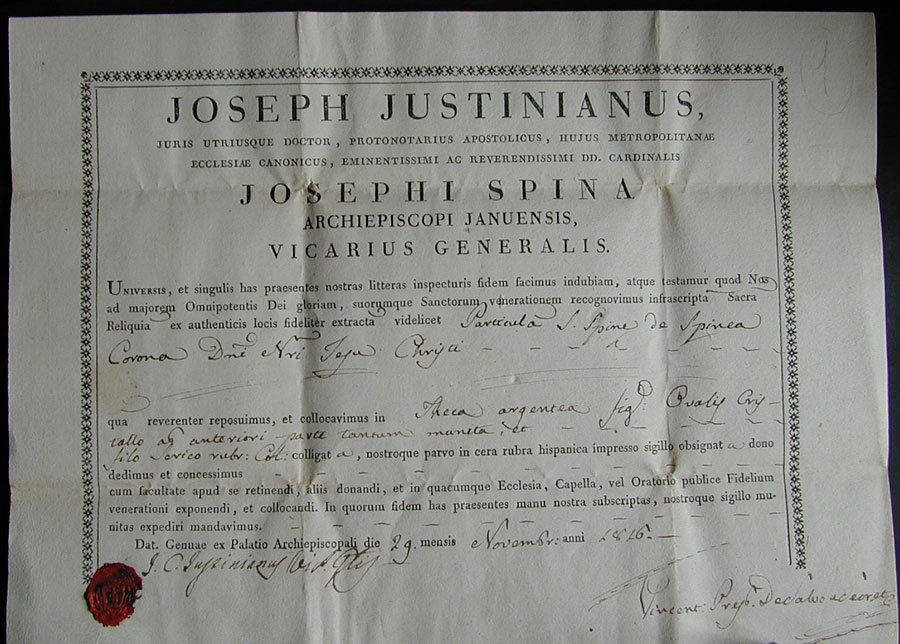 JOSEPH JUSTINIANUS,
JURIS UTRIUSQUE DOCTOR, PROTONOTARIUS APOSTOLICUS, HUJUS METROPOLITANÆ
ECCLESIÆ CANONICUS, EMINENTISSIMI AC REVERENDISSIMI DD. CARDINALIS
JOSEPHI SPINA
ARCHIEPISCOPI JANUENSIS,
VICARIUS GENERALIS.
UNIVERSIS, et singulis has praesentes nostras litteras inspecturis fidem facimus indubiam, atque testamur quod Nos
ad majorem Omnipotentis Dei gloriam, suorumque Sanctorum venerationem recognovimus infrascripta Sacra
Reliquia ex authenticis locis fideliter extracta videlicet Particula S. Spine de Spinea
Corona Dnī Nrī Jesu Christi
qua reverenter reposuimus, et collocavimus in Theca argentea fig. Ovalis Cris-
tallo ab anteriori parte tantum munita, et
filo serico rubr: Col: colligata, nostroque parvo in cera rubra hispanica impresso sigillo obsignata dono
dedimus et concessimus
cum facultate apud se retinendi, aliis donandi, et in quacumque Ecclesia, Capella, vel Oratorio publice Fidelium
venerationi exponendi, et collocandi. In quorum fidem has praesentes manu nostra subscriptas, nostroque sigillo mu-
nitas expediri mandavimus.
Dat. Genuae ex Palatio Archiepiscopali die 29. mensis Novembr: anni 1816.
J. C. Justinianus Vic. Glis
Vincent: Presb.